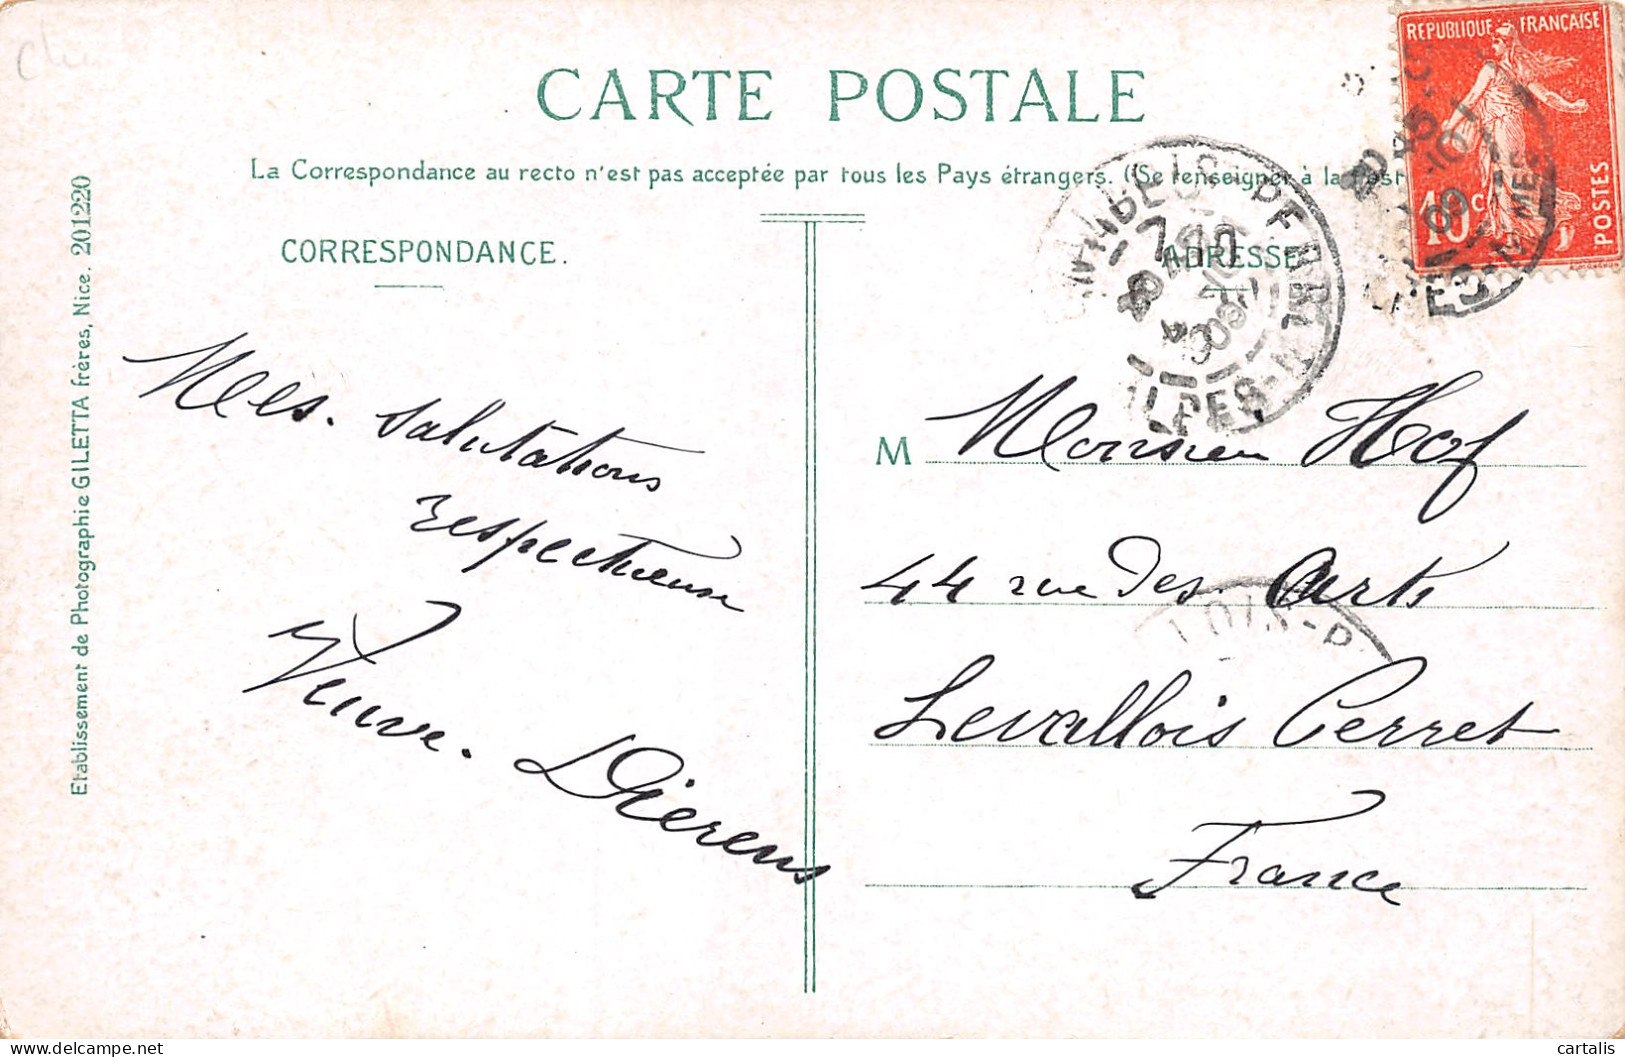 CARTE POSTALE
La Correspondance au recto n'est pas acceptée par tous les Pays étrangers. (Se renseigner à la Post
CORRESPONDANCE.
ADRESSE
Etablissement de Photographie GILETTA frères, Nice. 201220
REPUBLIQUE FRANÇAISE
10 c
POSTES
ALPES-M
Mees. salutations
respectueuse
Veuve. Dierens
M Monsieur Hof
44 rue des Arts
Levallois Perret
France
LOIS-P
cartalis